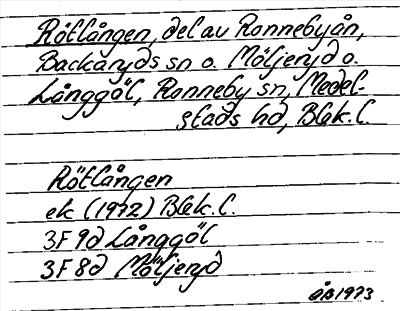 Rötlången, del av Ronnebyån,
Backaryds sn o. Möljeryd o.
Långgöl, Ronneby sn, Medel-
stads hd, Blek. l.
Rötlången
ek (1972) Blek. l.
3F 9d Långgöl
3F 8d Möljeryd
ÅB 1973